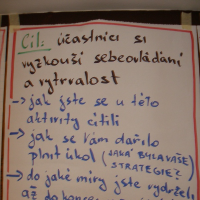 Cíl: účastníci si
vyzkouší sebeovládání
a vytrvalost
→ jak jste se u této
aktivity cítili
→ jak se vám dařilo
plnit úkol (JAKÁ BYLA VAŠE
STRATEGIE?
→ do jaké míry jste vydrželi
až do konce